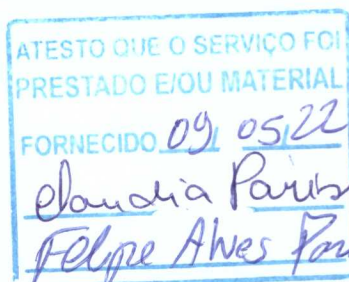 ATESTO QUE O SERVIÇO FOI
PRESTADO E/OU MATERIAL
FORNECIDO 09/ 05/22
Claudia Paris
Felipe Alves Par